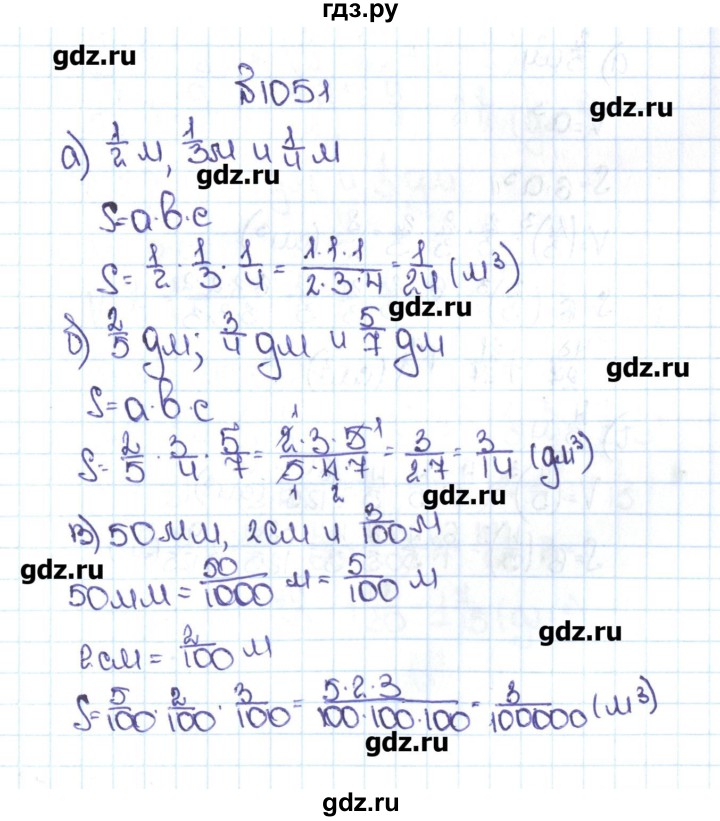 гдз.ру
gdz.ru
№1051
gdz.ru
а) 1/2 м, 1/3 м и 1/4 м
gdz.ru
S=a·b·c
S= 1/2 · 1/3 · 1/4 = 1·1·1/2·3·4 = 1/24 (м³)
gdz.ru
б) 2/5 дм; 3/4 дм и 5/7 дм
gdz.ru
S=a·b·c
S= 2/5 · 3/4 · 5/7 = 2·3·5/5·4·7 = 3/2·7 = 3/14 (дм³)
gdz.ru
в) 50мм, 2см и 3/100 м
gdz.ru
50мм = 50/1000 м = 5/100 м
gdz.ru
2см = 2/100 м
S= 5/100 · 2/100 · 3/100 = 5·2·3/100·100·100 = 3/100000 (м³)
gdz.ru
gdz.ru